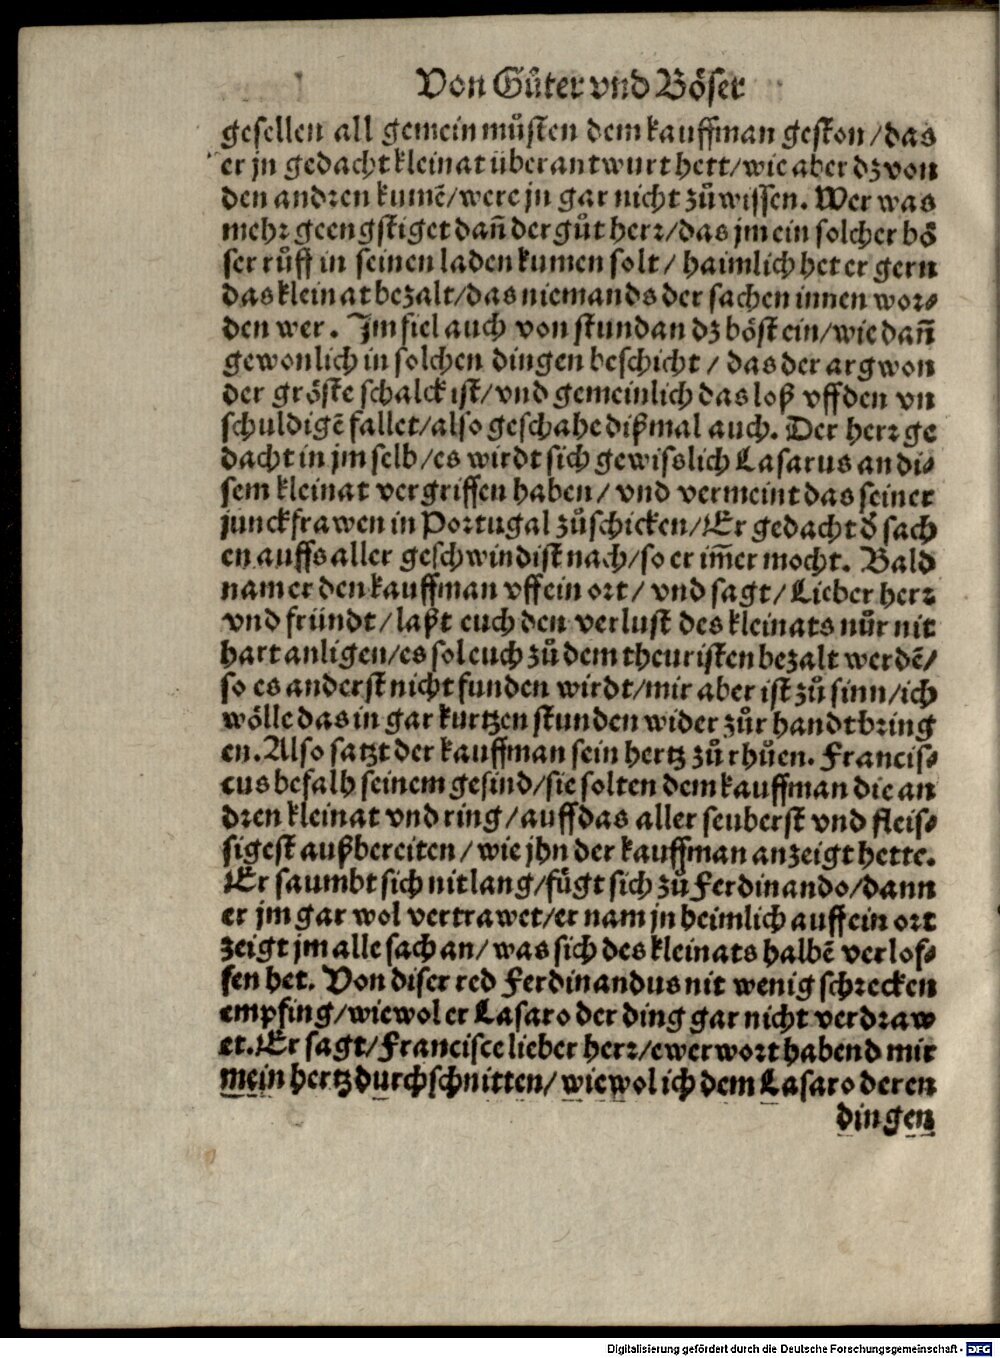 Von Gůter vnd Böser
gesellen all gemein můsten dem kauffman geston/das
er jn gedacht kleinat überantwurt hett/wie aber dz von
den andren kumē/were jn gar nicht zů wissen. Wer was
mehr geengstiget dañ der gůt herr/das jm ein solcher bö
ser růff in seinen laden kumen solt/ haimlich het er gern
das kleinat bezalt/das niemands der sachen innen wor⸗
den wer. Jm fiel auch von stundan dz böst ein/wie dañ
gewonlich in solchen dingen beschicht/ das der argwon
der gröste schalck ist/vnd gemeinlich das loß vff den vn
schuldigē fallet/also geschahe dißmal auch. Der herr ge
dacht in jm selb/es wirdt sich gewisslich Lasarus an di⸗
sem kleinat vergriffen haben/ vnd vermeint das seiner
junckfrawen in Portugal zůschicken/Er gedacht ď sach
en auffs aller geschwindist nach/so er im̄er mocht. Bald
nam er den kauffman vff ein ort/ vnd sagt/Lieber herr
vnd fründt/laßt euch den verlust des kleinats nůr nit
hart anligen/es sol euch zů dem theuristen bezalt werdē/
so es anderst nicht funden wirdt/mir aber ist zů sinn/ich
wölle das in gar kurtzen stunden wider zůr handt bring
en. Also satzt der kauffman sein hertz zů rhůen. Francis⸗
cus befalh seinem gesind/sie solten dem kauffman die an
dren kleinat vnd ring/auff das aller seuberst vnd fleis⸗
sigest außbereiten/wie jhn der kauffman anzeigt hette.
Er saumbt sich nit lang/fůgt sich zů Ferdinando/dann
er jm gar wol vertrawet/er nam jn heimlich auff ein ort
zeigt jm alle sach an/was sich des kleinats halbē verlof⸗
fen het. Von diser red Ferdinandus nit wenig schrecken
empfing/wiewol er Lasaro der ding gar nicht verdraw
et. Er sagt/Francisce lieber herr/ewer wort habend mir
mein hertz durchschnitten/wiewol ich dem Lasaro deren
dingen
Digitalisierung gefördert durch die Deutsche Forschungsgemeinschaft - DFG